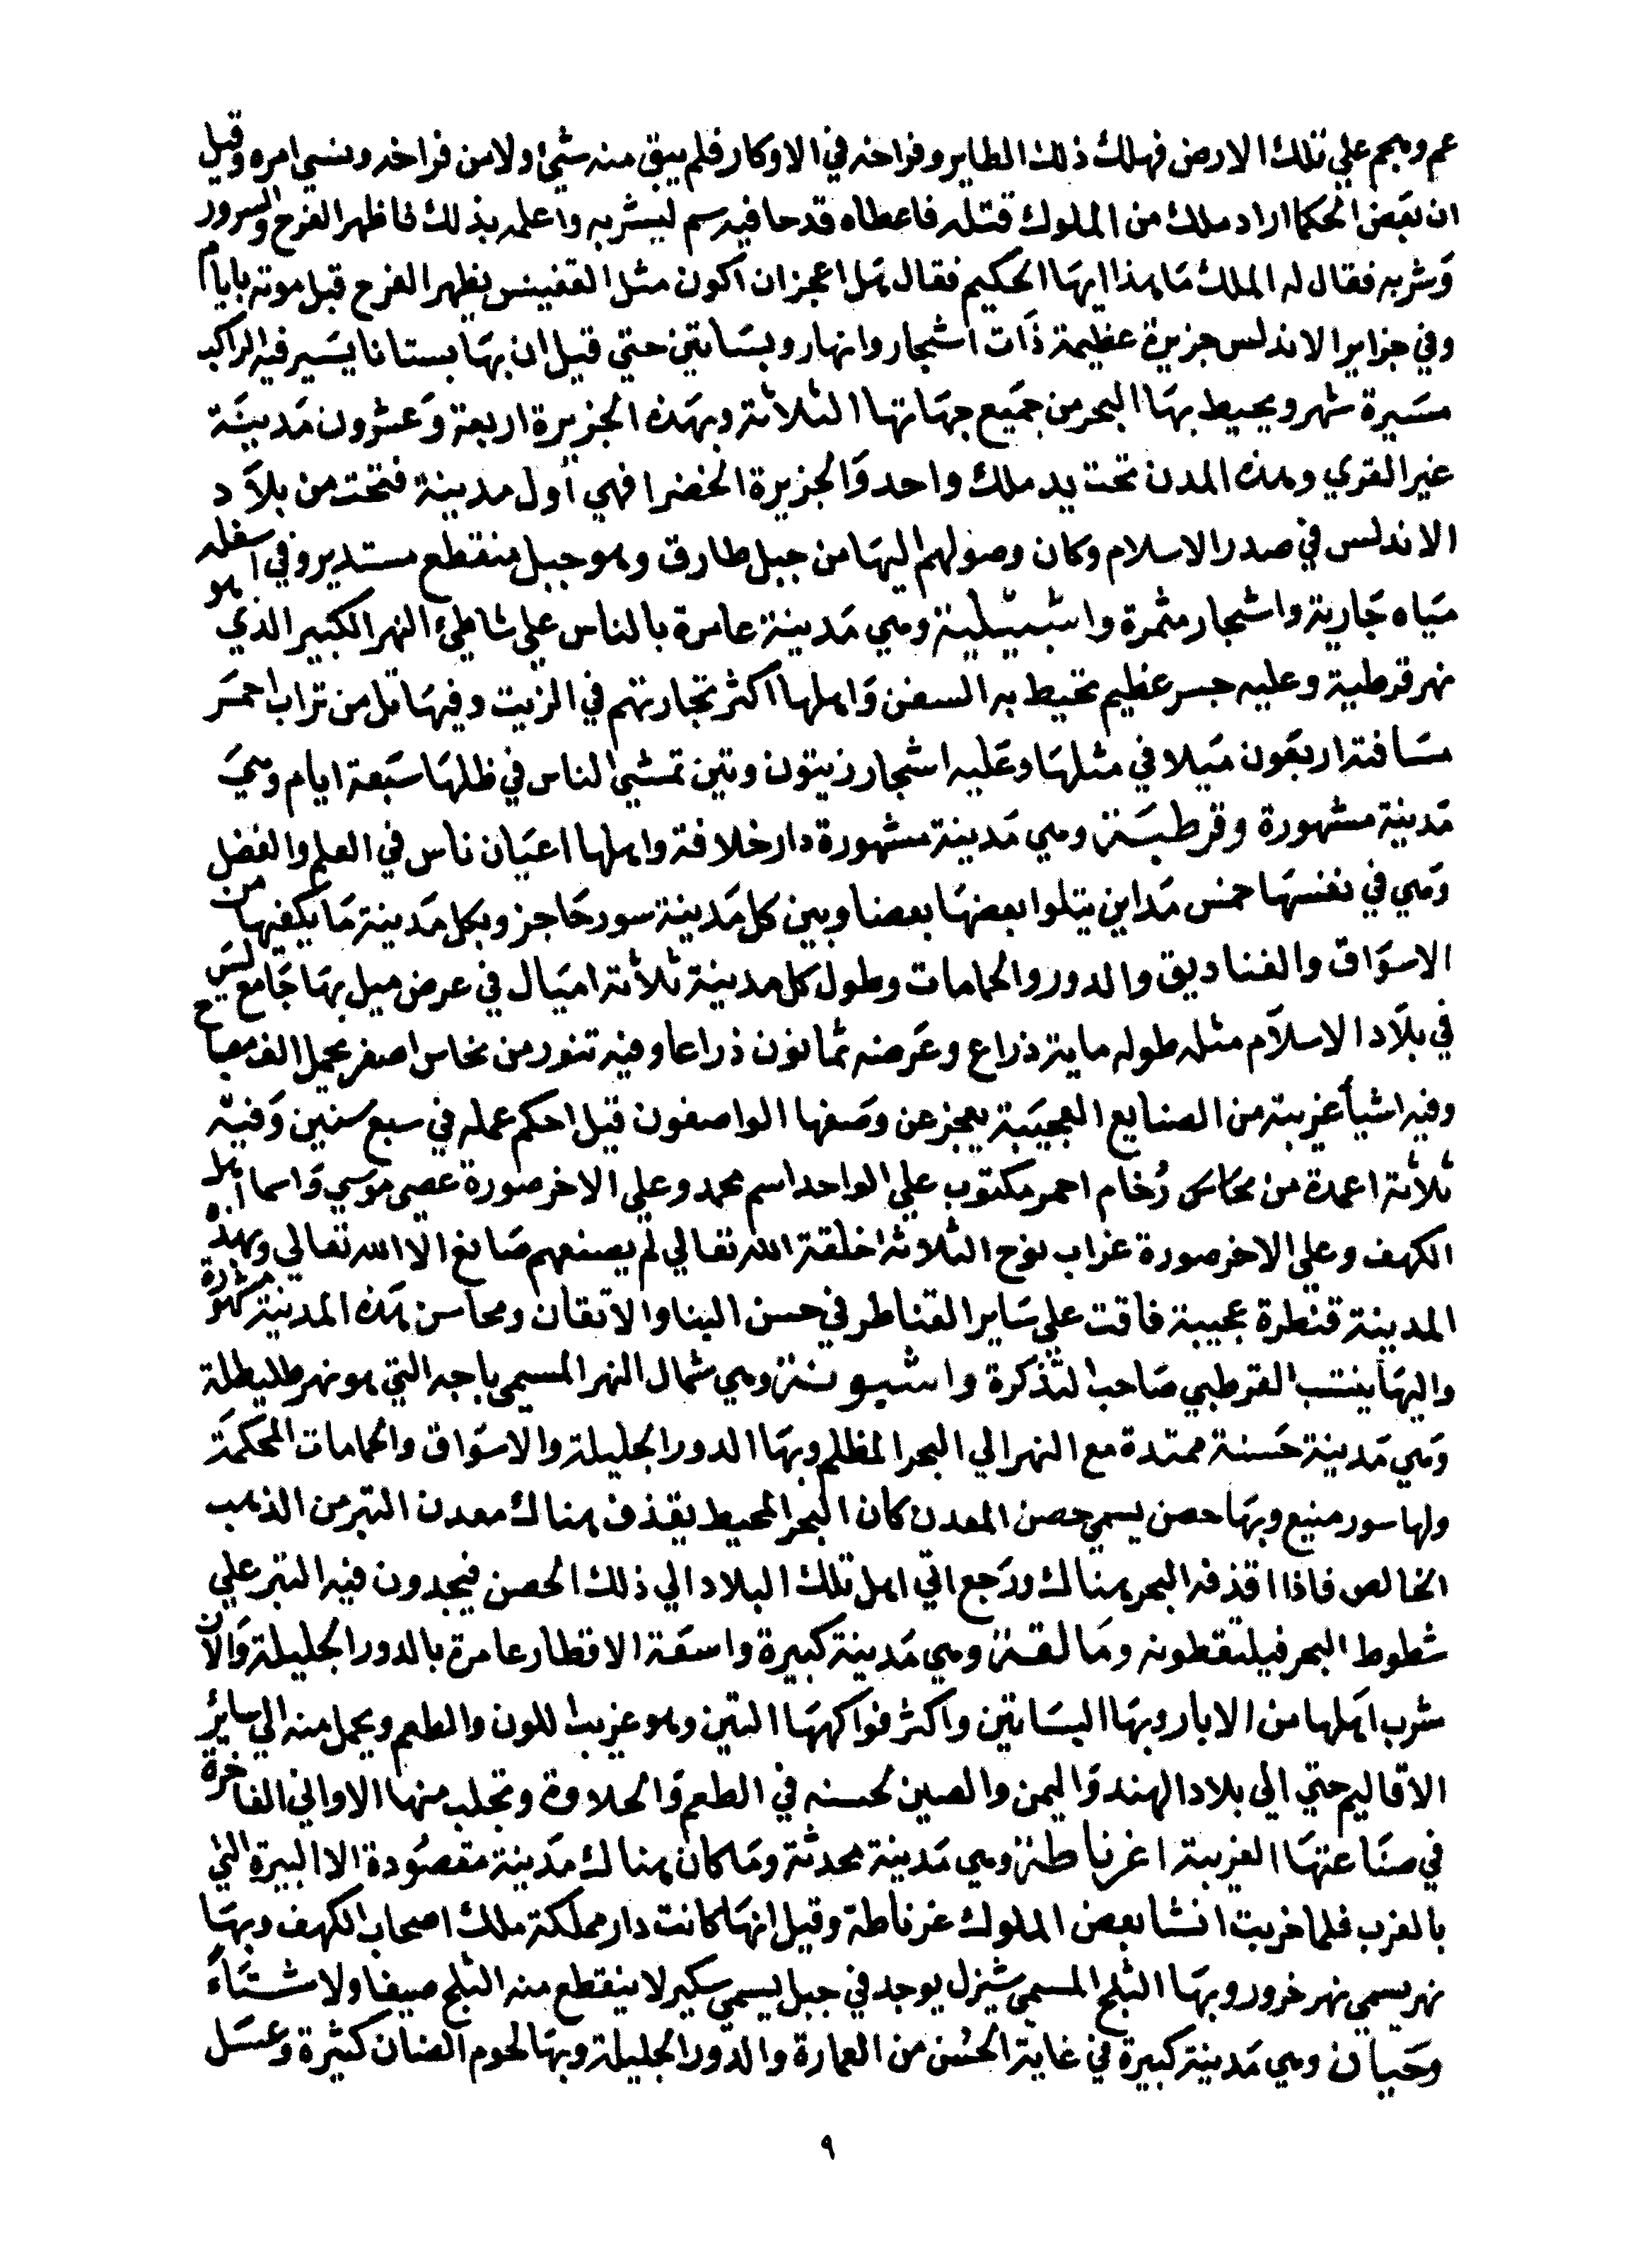 عم وهجم علي تلك الارض فهلك ذلك الطاير وفراخه في الاوكار فلم يبق منه شيئ ولا من فراخه ونسي امره وقيل
ان بعض الحكما اراد ملك من الملوك قتله فاعطاه قدحا فيه سم ليشربه واعلمه بذلك فاظهر الفرح والسرور
وشربه فقال له الملك ما هذا ايها الحكيم فقال هل اعجز ان اكون مثل القفينس يظهر الفرح قبل موته بايام
وفي جزاير الاندلس جزيرة عظيمة ذات اشجار وانهار وبساتين حتي قيل ان بها بستانا يسير فيه الراكب
مسيرة شهر ويحيط بها البحر من جميع جهاتها الثلاثة وبهذه الجزيرة اربعة وعشرون مدينة
غير القري وهذه المدن تحت يد ملك واحد والجزيرة الخضرا فهي اول مدينة فتحت من بلاد
الاندلس في صدر الاسلام وكان وصولهم اليها من جبل طارق وهو جبل منقطع مستدير وفي اسفله
مياه جارية واشجار مثمرة واشبيلية وهي مدينة عامرة بالناس علي شاطئ النهر الكبير الذي هو
نهر قرطبة وعليه جسر عظيم تحيط به السفن واهلها اكثر تجارتهم في الزيت وفيها تل من تراب احمر
مسافته اربعون ميلا في مثلها وعليه اشجار زيتون وتين تمشي الناس في ظلها سبعة ايام وهي
مدينة مشهورة وقرطبة وهي مدينة مشهورة دار خلافة واهلها اعيان ناس في العلم والفضل
وهي في نفسها خمس مداين يتلوا بعضها بعضا وبين كل مدينة سور حاجز وبكل مدينة ما يكفيها من
الاسواق والفناديق والدور والحمامات وطول كل مدينة ثلاثة اميال في عرض ميل بها جامع ليس
في بلاد الاسلام مثله طوله ماية ذراع وعرضه ثمانون ذراعا وفيه تنور من نحاس اصفر يحمل الف مصباح
وفيه اشيأ غريبة من الصنايع العجيبة يعجز عن وصفها الواصفون قيل احكم عمله في سبع سنين وفيه
ثلاثة اعمدة من نحاس رخام احمر مكتوب علي الواحد اسم محمد وعلي الاخر صورة عصى موسي واسما اهل
الكهف وعلي الاخر صورة غراب نوح الثلاثة اخلقة الله تعالي لم يصنعهم صانع الا الله تعالي وبهذه
المدينة قنطرة عجيبة فاقت علي ساير القناطر في حسن البنا والاتقان ومحاسن هذه المدينة مشهورة
واليها ينتسب القرطبي صاحب التذكرة واشبونة وهي شمال النهر المسمي باجه التي هو نهر طليطلة
وهي مدينة حسنة ممتدة مع النهر الي البحر المظلم وبها الدور الجليلة والاسواق والحمامات المحكمة
ولها سور منيع وبها حصن يسمي حصن المعدن كان البحر المحيط يقذف هناك معدن التبر من الذهب
الخالص فاذا اقذفه البحر هناك ورجع اتي اهل تلك البلاد الي ذلك الحصن فيجدون فيه التبر علي
شطوط البحر فيلتقطونه ومالقة وهي مدينة كبيرة واسعة الاقطار عامرة بالدور الجليلة والان
شرب اهلها من الابار وبها البساتين واكثر فواكهها التين وهو غريب اللون والطعم ويحمل منه الي سائر
الاقاليم حتي الي بلاد الهند واليمن والصين لحسنه في الطعم والحلاوة وتجلب منها الاواني الفاخرة
في صناعتها الغريبة اغرناطة وهي مدينة محدثة وما كان هناك مدينة مقصودة الا البيرة التي
بالغرب فلما خربت انشا بعض الملوك غرناطة وقيل انها كانت دار مملكة ملك اصحاب الكهف وبها
نهر يسمي نهر خرور وبها الثلج المسمي شيزل يوجد في جبل يسمي سكير لا ينقطع منه الثلج صيفا ولا شتاء
وحيان وهي مدينة كبيرة في غاية الحسن من العمارة والدور الجليلة وبها لحوم الضان كثيرة وعسل
٩